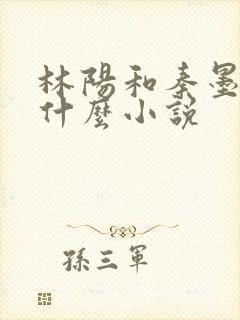 林陽和秦墨
什麼小說
孫三軍